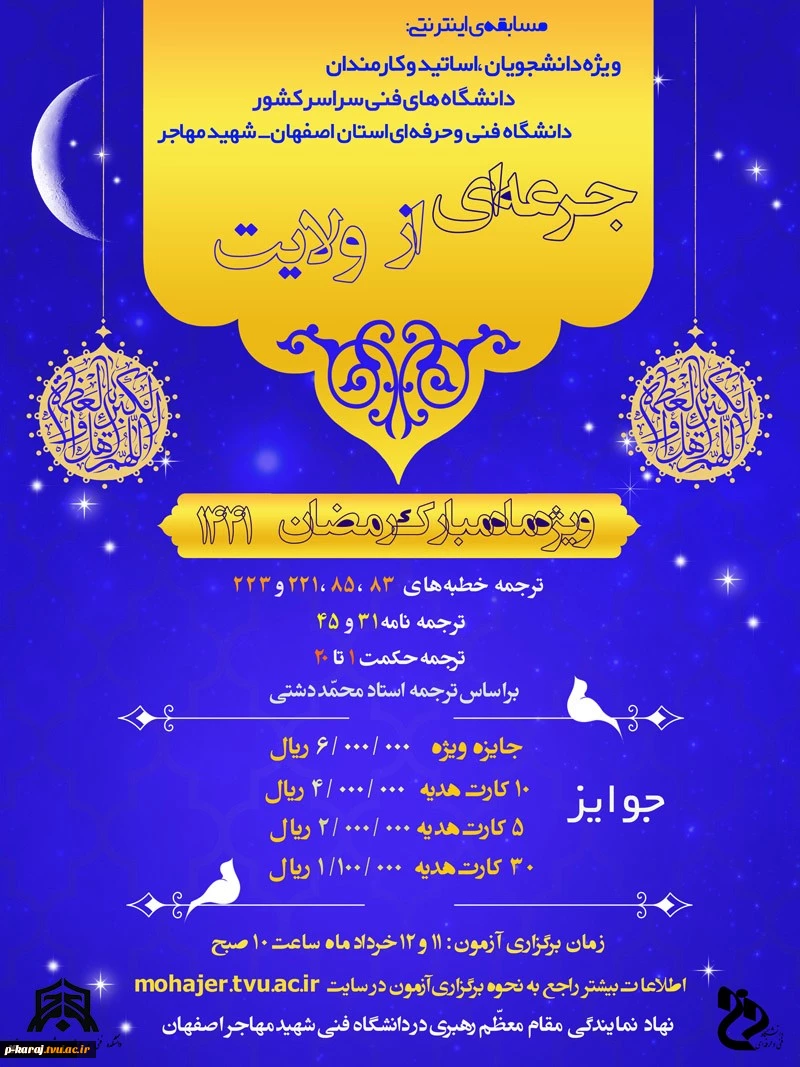 مسابقه‌ی اینترنتی:
ویژه دانشجویان، اساتید و کارمندان
دانشگاه های فنی سراسر کشور
دانشگاه فنی و حرفه ای استان اصفهان_ شهید مهاجر
جرعه‌ای از ولایت
اللهم اهل الکبریاء و العظمة
اللهم اهل الکبریاء و العظمة
ویژه ماه مبارک رمضان ۱۴۴۱
ترجمه خطبه‌های ۸۳ ، ۸۵ ، ۲۲۱ و ۲۲۳
ترجمه نامه ۳۱ و ۴۵
ترجمه حکمت ۱ تا ۲۰
براساس ترجمه استاد محمّد دشتی
جوایز
جایزه ویژه ۶/۰۰۰/۰۰۰ ریال
۱۰ کارت هدیه ۴/۰۰۰/۰۰۰ ریال
۵ کارت هدیه ۲/۰۰۰/۰۰۰ ریال
۳۰ کارت هدیه ۱/۱۰۰/۰۰۰ ریال
زمان برگزاری آزمون : ۱۱ و ۱۲ خرداد ماه ساعت ۱۰ صبح
اطلاعات بیشتر راجع به نحوه برگزاری آزمون در سایت mohajer.tvu.ac.ir
نهاد نمایندگی مقام معظّم رهبری در دانشگاه فنی شهید مهاجر اصفهان
p-karaj.tvu.ac.ir